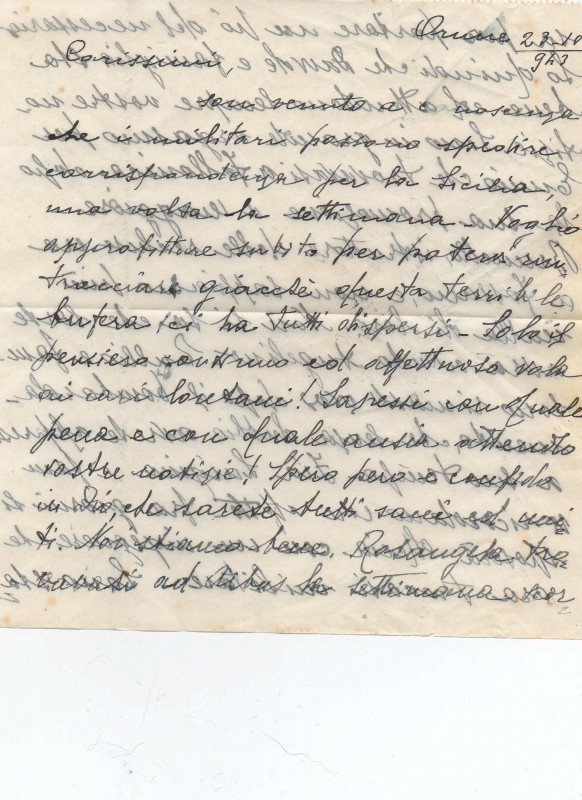 23-10
943
Carissimi,
sono venuto a conoscenza
che i militari possono spedire
corrispondenza per la Sicilia,
una volta la settimana - Voglio
approfittare subito per potervi rin
tracciare giacché questa terribile
bufera ci ha tutti dispersi - Solo il
pensiero continuo ed affettuoso vola
ai cari lontani! Sapessi con quale
pena e con quale ansia attendo
vostre notizie! Spero però e confido
in Dio, che sarete tutti sani ed uni
ti. Noi stiamo bene. Rosangela tro
vavasi ad la settimana scor